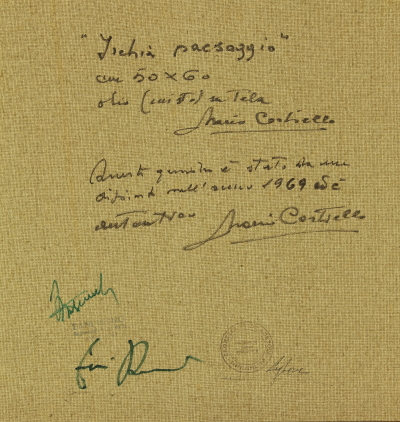 "Ischia paesaggio"
cm 50×60
olio (misto) su tela
Mario Cortiello
Questo quadro è stato da me
dipinto nell'anno 1969 ed è
autentico Mario Cortiello